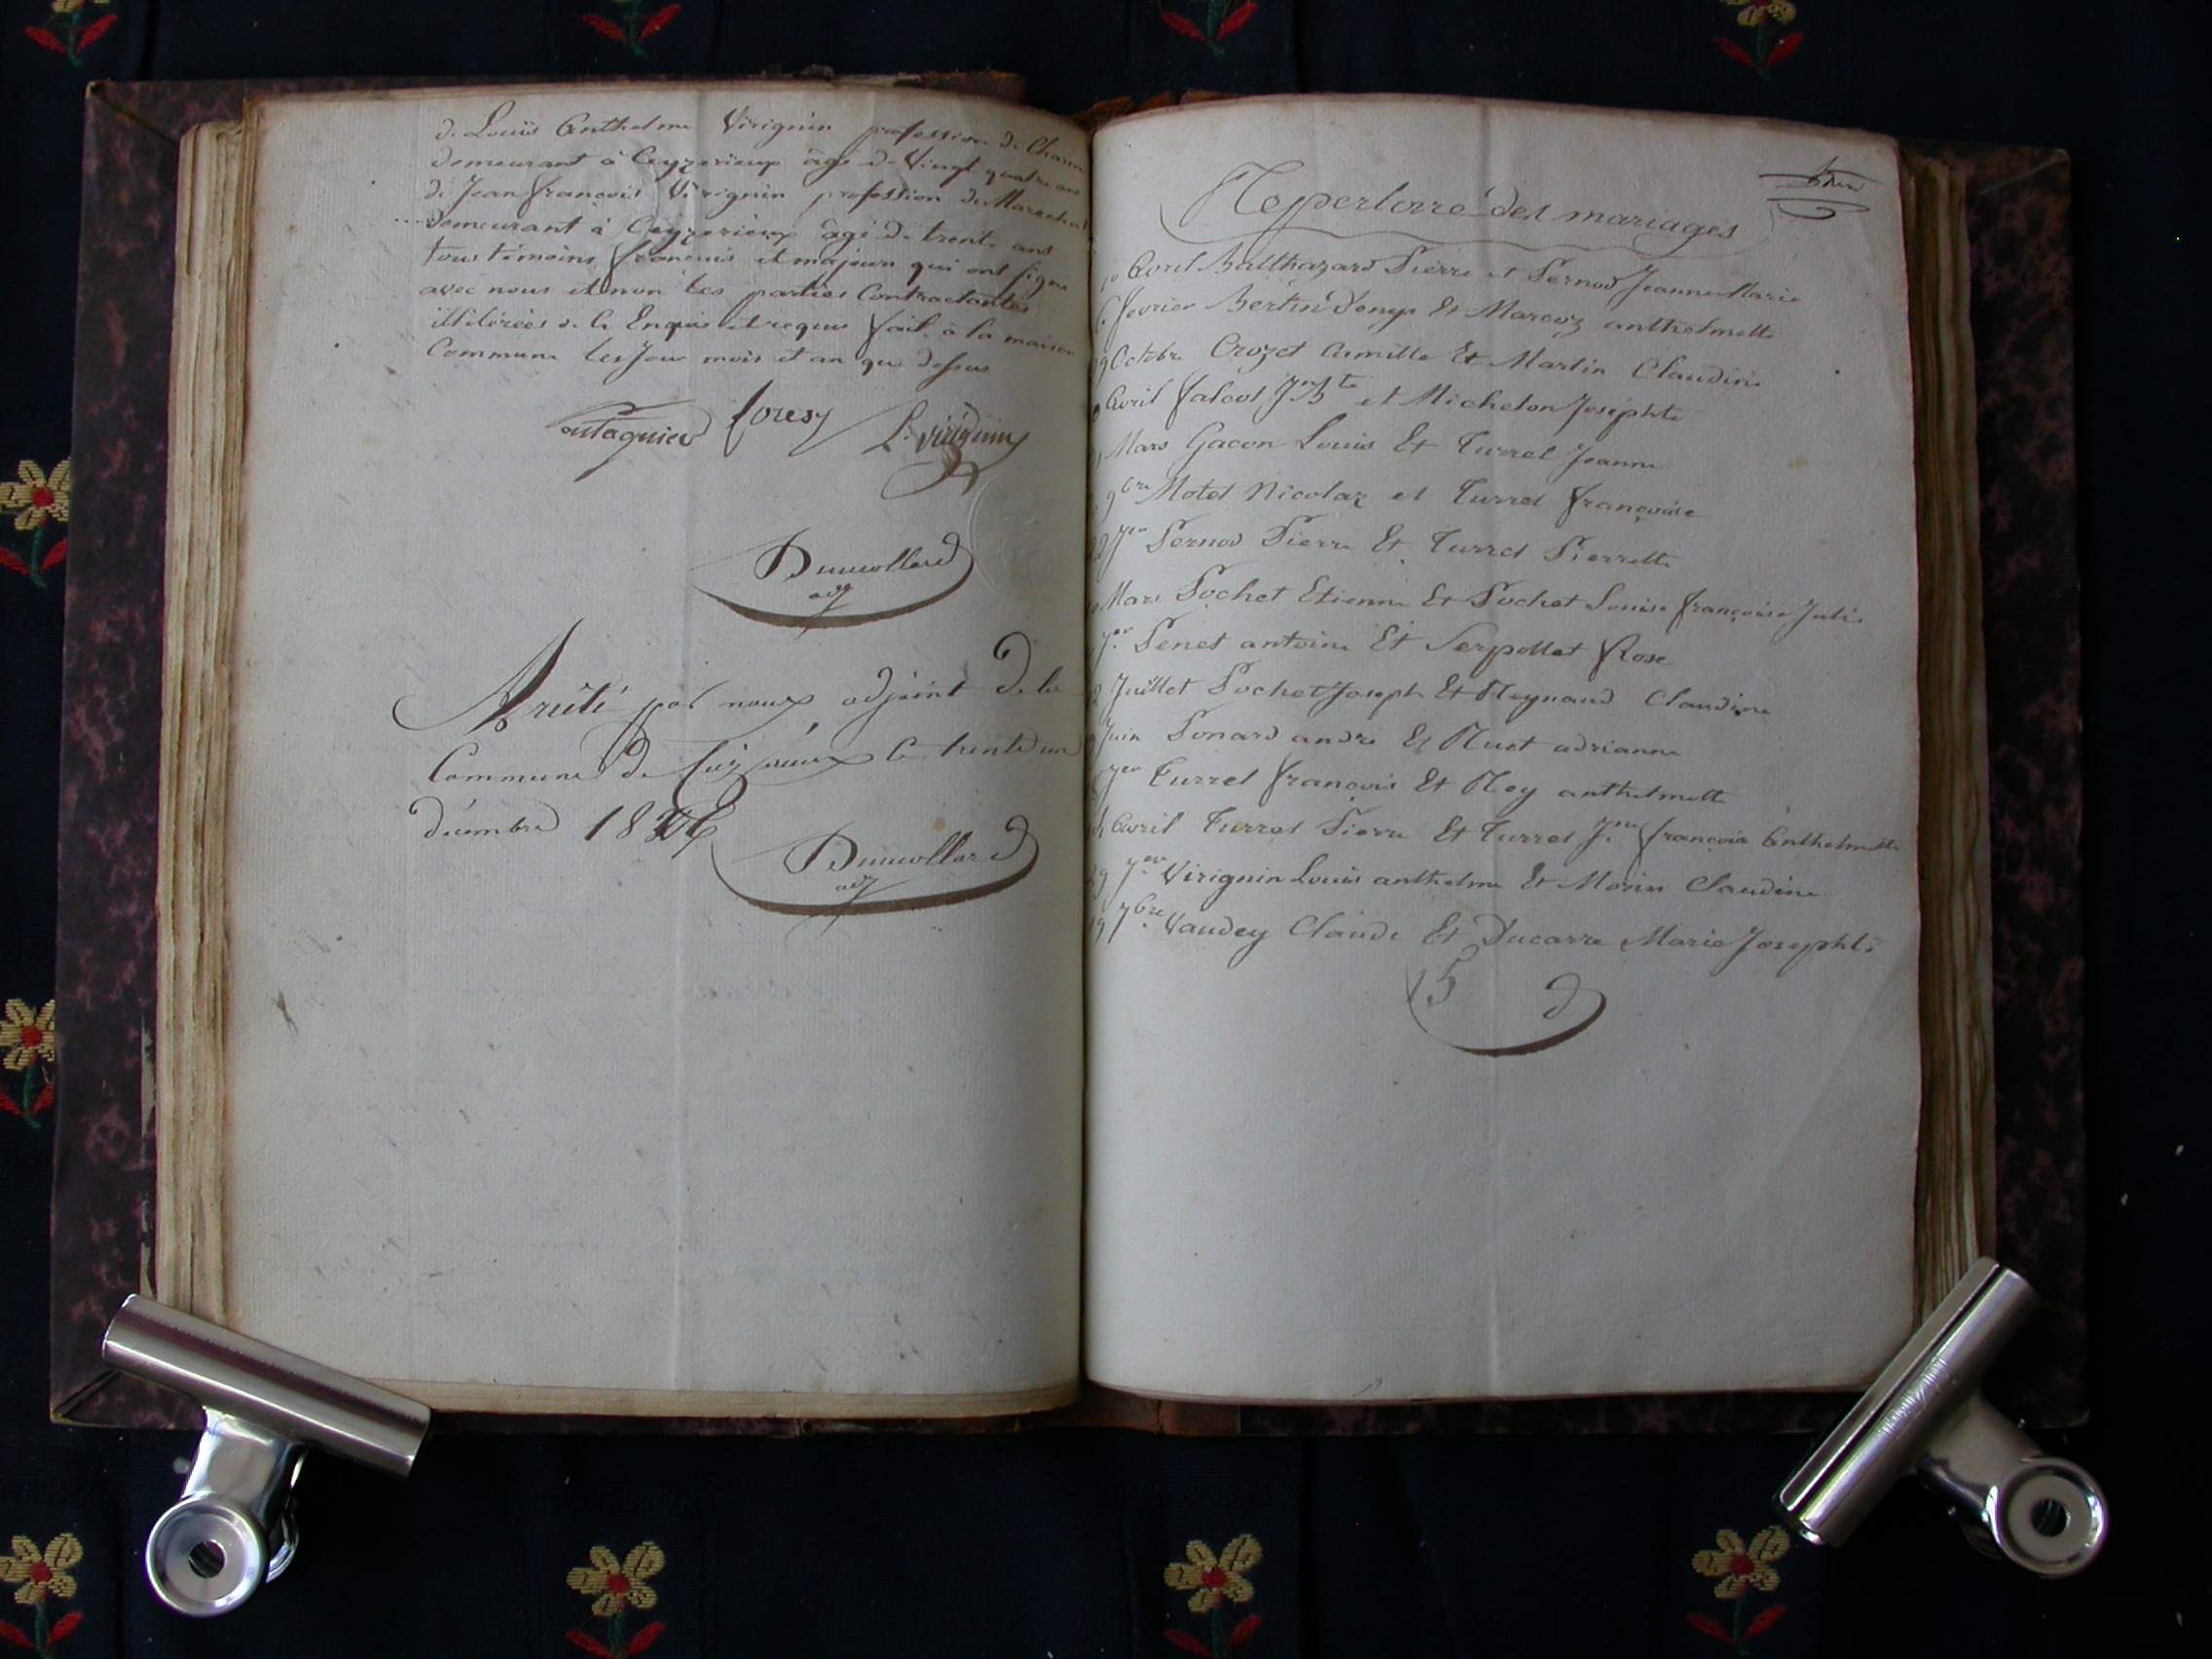 de Louis Anthelme Virignin profession de Charon
demeurant à Ceyzerieux âgé de Vingt quatre ans
de Jean françois Virignin profession de Marechal
demeurant à Ceyzerieux âgé de trente ans
tous témoins français et majeurs qui ont signé
avec nous et non les parties Contractantes
illiterées de le Enquis et requis fait à la maison
Commune les Jour mois et an que dessus
L. virignin
Dumollard
adj
Arrêté par nous adjoint de la
Commune de le trente un
décembre 18
Dumollard
adj
Repertoire des mariages
Avril Balthazard Pierre et Pernod Jeanne Marie
fevrier Bertin Denys Et Marcoz anthelmette
Octobre Crozet Camille Et Martin Claudine
Avril falcot Jn Bte et Michelon Josephte
Mars Gacon Louis Et Turrel Jeanne
9bre Motet Nicolas et Turrel françoise
22 Jer Pernod Pierre Et Turrel Pierrette
Mars Pochet Etienne Et Pochet Louise françoise Julie
Jer Penet antoine Et Serpollet Rose
Juillet Pochet Joseph Et Reynaud Claudine
Juin Ponard andré Et Ruet adrianne
Jer Turrel françois Et Rey anthelmette
Avril Turrel Pierre Et Turrel Jne françoise Anthelmette
29 Jer Virignin Louis anthelme Et Morin Claudine
19 7bre Vaudey Claude Et Ducarre Marie Josephte
15 D